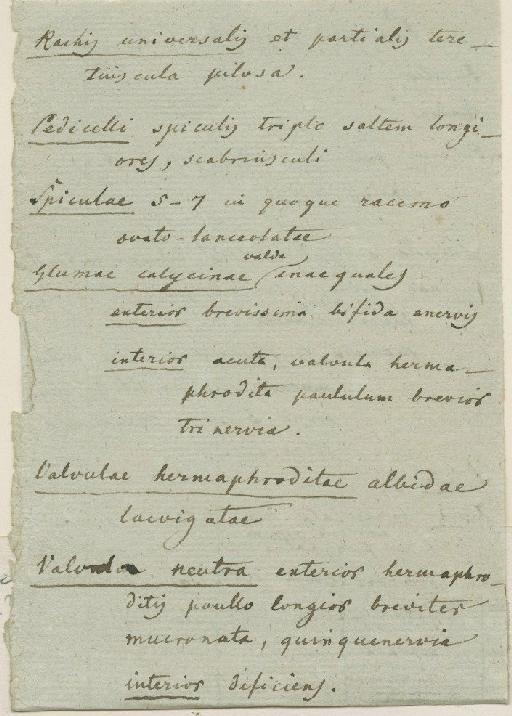 Rachis universalis et partialis tere-
tiuscula pilosa.
Pedicelli spiculis triplo saltem longi-
ores, scabriusculi
Spiculae 5-7 in quoque racemo
ovato-lanceolatae
valde
Glumae calycinae inaequales
exterior brevissima bifida enervis
interior acuta, valvula herma-
phrodita paululum brevior
trinervia.
Valvulae hermaphroditae albidae
laevigatae
Valvula neutra exterior hermaphro-
ditis paullo longior breviter
mucronata, quinquenervia
interior deficiens.